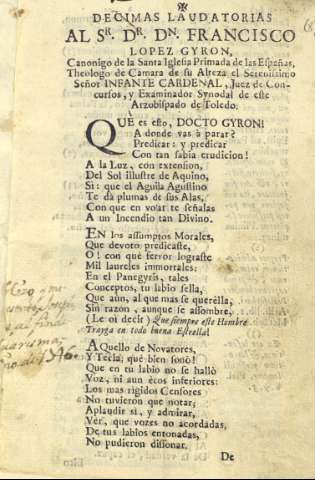 DECIMAS LAUDATORIAS
AL SR. DR. DN. FRANCISCO
LOPEZ GYRON,
Canonigo de la Santa Iglesia Primada de las Españas,
Theologo de Camara de su Alteza el Serenissimo
Señor INFANTE CARDENAL, Juez de Con-
cursos, y Examinador Synodal de este
Arzobispado de Toledo.
QUE es esto, DOCTO GYRON!
A donde vas à parar?
Predicar: y predicar
Con tan sabia erudicion!
A la Luz, con extension,
Del Sol illustre de Aquino,
Si: que el Aguila Agustino
Te dà plumas de sus Alas,
Con que en volar te señalas
A un Incendio tan Divino.
EN los assumptos Morales,
Que devoto predicaste,
O! con què fervor lograste
Mil laureles immortales:
En el Panegyris, tales
Conceptos, tu labio sella,
Que aùn, al que mas se querèlla,
Sin razòn, aunque se assombre,
(Le oì decir) Que siempre este Hombre
Trayga en todo buena Estrella!
AQuello de Novatores,
Y Tecla; què bien sonò!
Que en tu labio no se hallò
Voz, ni aun ècos inferiores:
Los mas rigidos Censores
No tuvieron que notar;
Aplaudir si, y admirar,
Vèr, que vozes no acordadas,
De tus labios entonadas,
No pudieron dissonar.
De